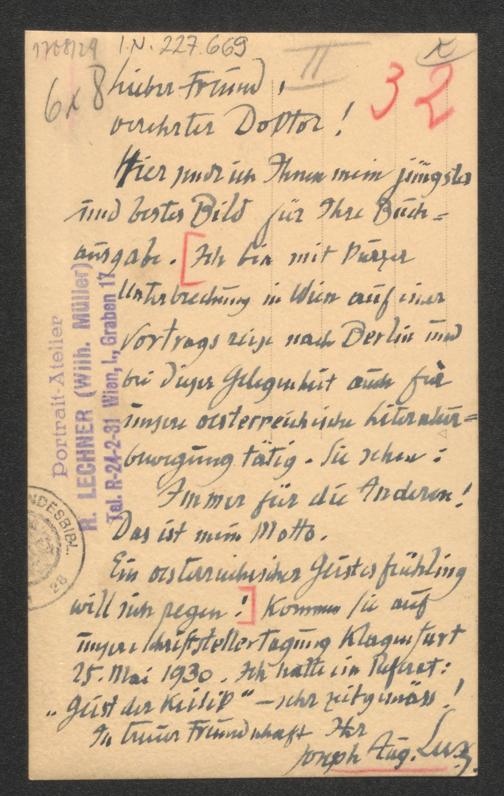 1708/29 I.N. 227.669
II
x
6x8
32
Lieber Freund,
verehrter Doktor!
Hier sende ich Ihnen mein jüngstes
und bestes Bild für Ihre Buch=
ausgabe. [Ich bin mit kurzer
Unterbrechung in Wien auf einer
Vortragsreise nach Berlin und
bei dieser Gelegenheit auch für
unsere oesterreichische Literatur=
bewegung tätig. Sie sehen:
Immer für die Anderen!
Das ist mein Motto.
Ein oesterreichischer Geistesfrühling
will sich regen!] Kommen Sie auf
unsere Schriftstellertagung Klagenfurt
25. Mai 1930. Ich halte ein Referat:
„Geist der Kritik" – sehr zeitgemäss!
In treuer Freundschaft Ihr
Joseph Aug. Lux.
Portrait-Atelier
R. LECHNER (Wilh. Müller)
Tel. R-24-2-31 Wien, I., Graben 17
NDESBIBL.